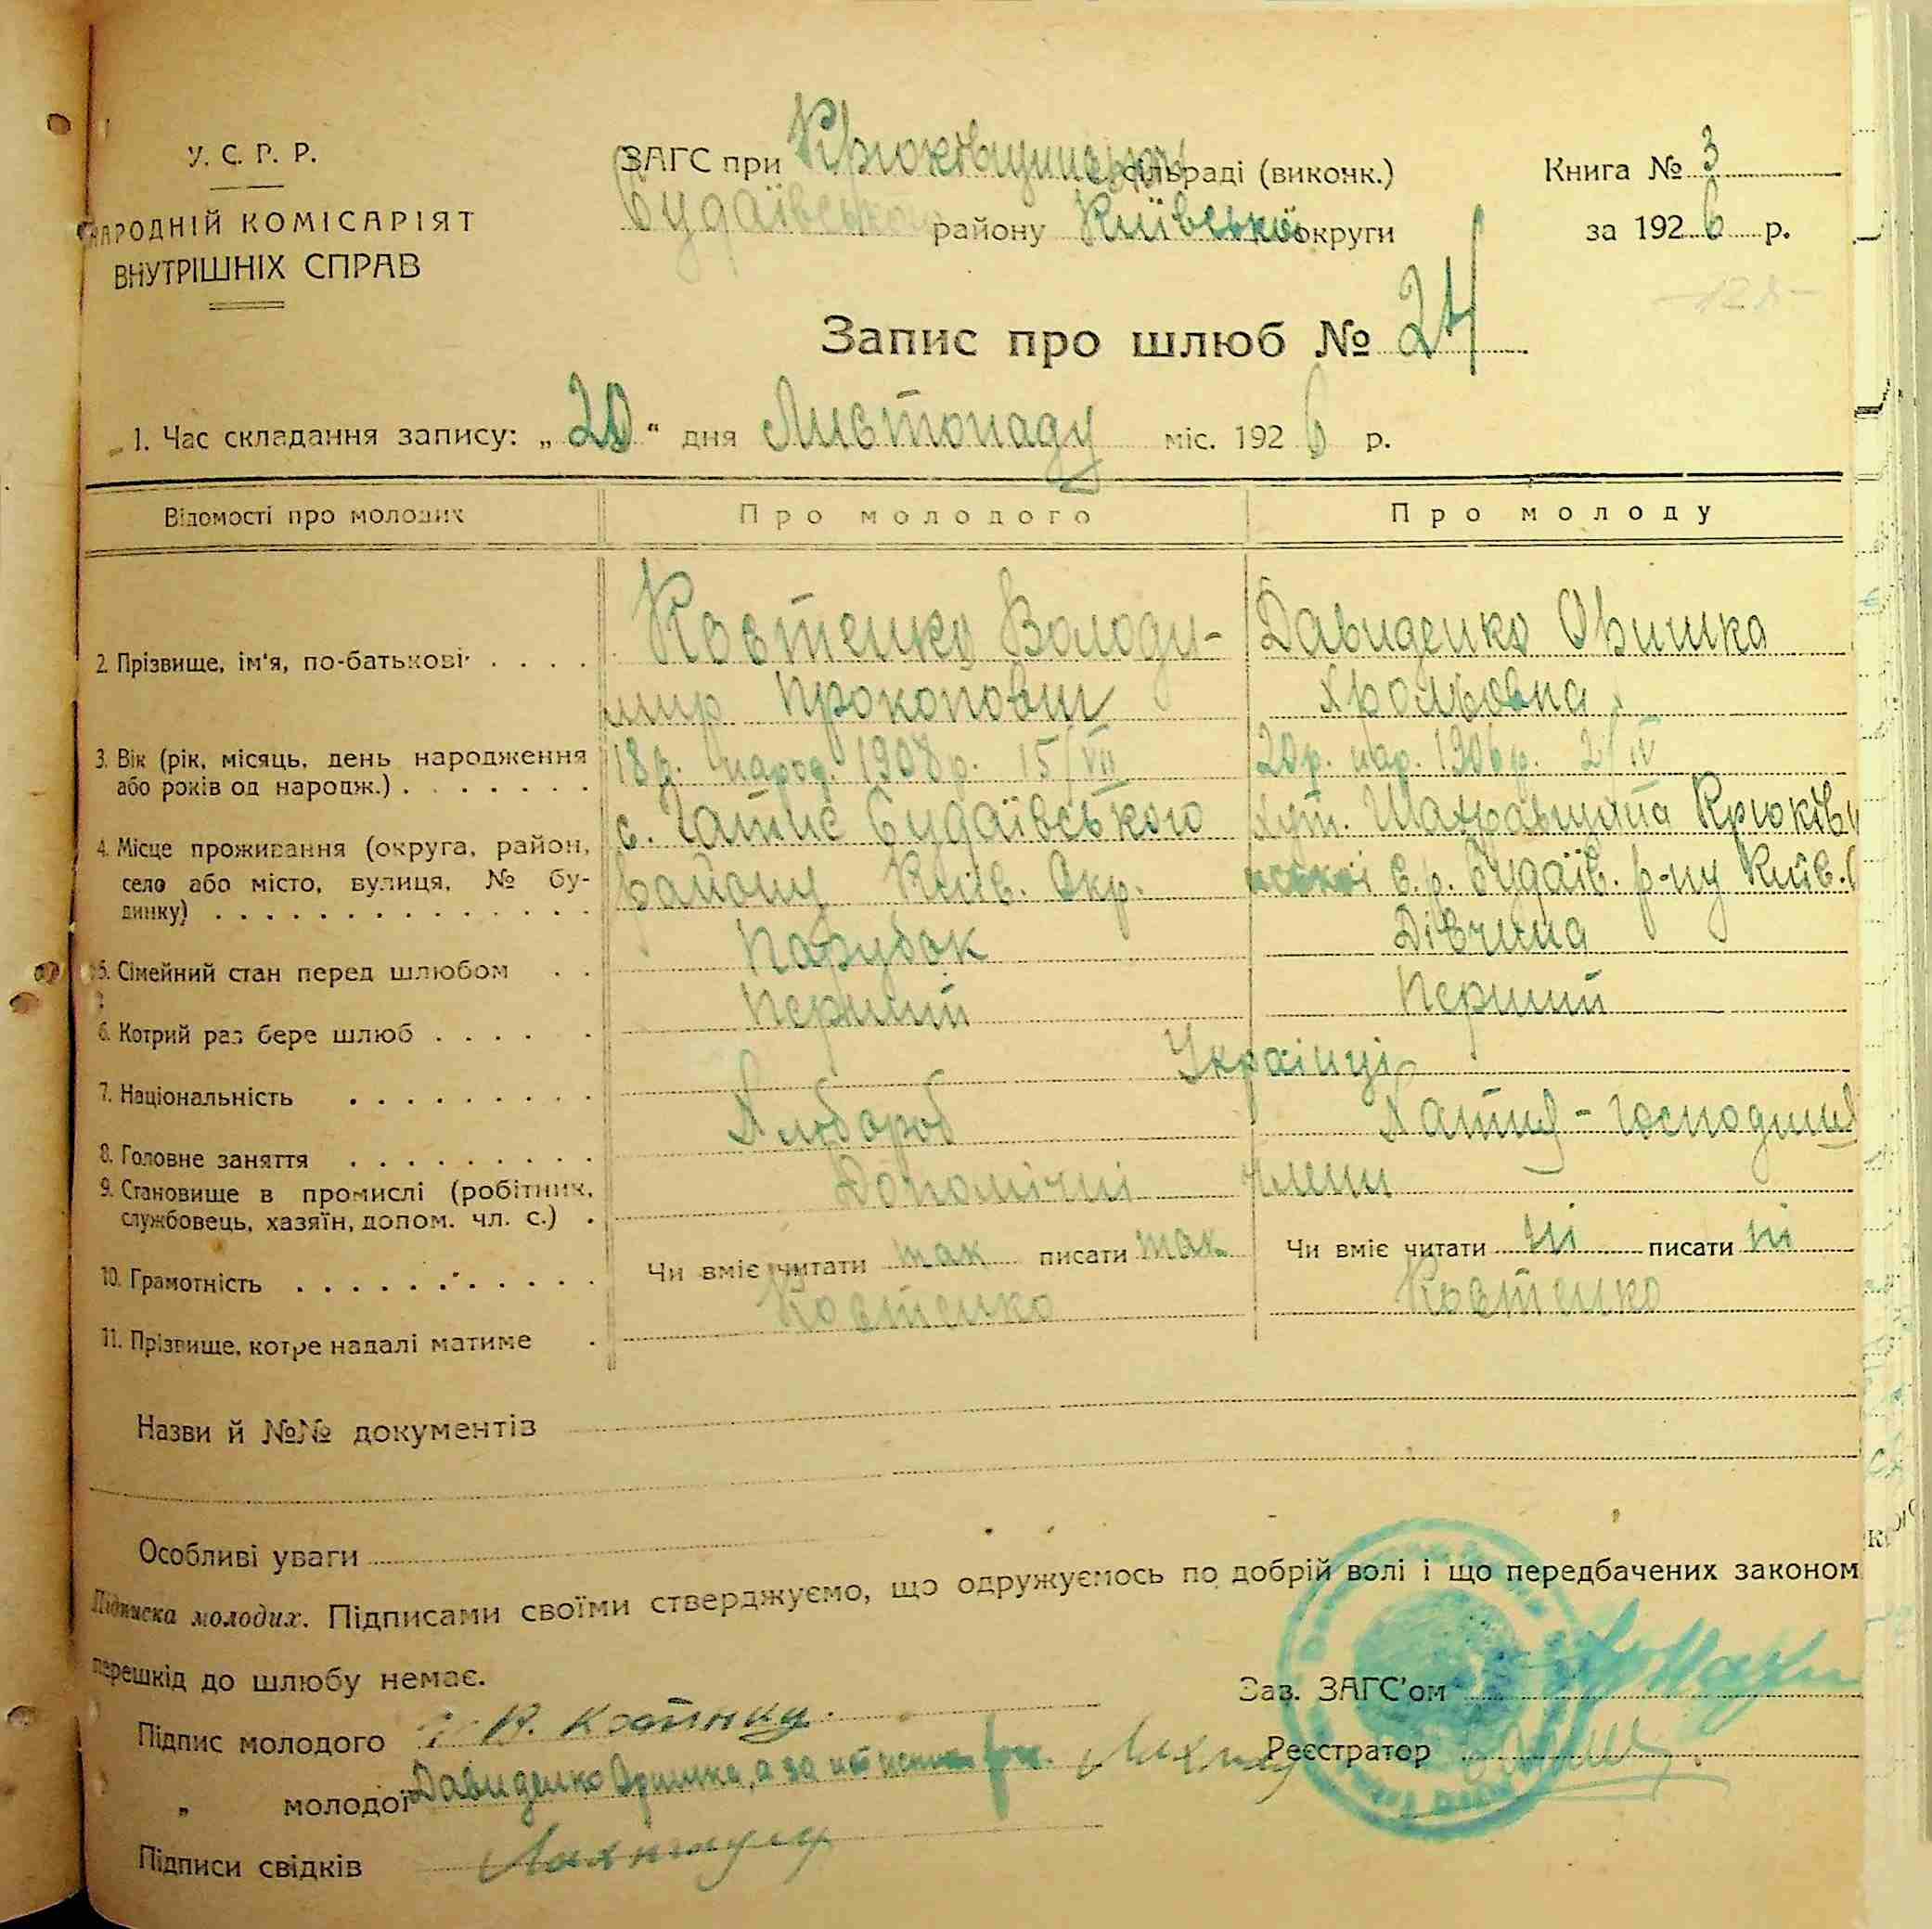 У. С. Р. Р.
НАРОДНІЙ КОМІСАРІЯТ
ВНУТРІШНІХ СПРАВ
ЗАГС при Крюківщинській сільраді (виконк.)
Будаївського району Київської округи
Книга № 3
за 1926 р.
Запис про шлюб № 24
1. Час складання запису: „20“ дня Листопаду міс. 1926 р.
Відомості про молодих Про молодого Про молоду
2. Прізвище, ім'я, по-батькові . . . . Костенко Володи- Давиденко Оришка
мир Прокопович
3. Вік (рік, місяць, день народження 18 р. народ. 1908 р. 15/VII 20 р. нар. 1906 р. 2/IV
або років од народж.) . . . . . . .
с. Гатне Будаївського хут. Крюківщ
4. Місце проживання (округа, район, району Київ. Окр. нської с. р. Будаїв. р-ну Київ.
село або місто, вулиця, № бу-
динку) . . . . . . . . . . . . . . .
5. Сімейний стан перед шлюбом . . Парубок Дівчина
6. Котрий раз бере шлюб . . . . . Перший Перший
7. Національність . . . . . . . . . Українці
8. Головне заняття . . . . . . . . . Хлібороб Хатня-господиня
9. Становище в промислі (робітник, Допомічні члени
службовець, хазяїн, допом. чл. с.) .
10. Грамотність . . . . . . . . . . . Чи вміє читати так писати так Чи вміє читати ні писати ні
11. Прізвище, котре надалі матиме . Костенко Костенко
Назви й №№ документів
Особливі уваги
Підписка молодих. Підписами своїми стверджуємо, що одружуємось по добрій волі і що передбачених законом
перешкід до шлюбу немає.
Зав. ЗАГС'ом
Підпис молодого В.
Реєстратор
„ молодої Давиденко Оришка, а за
Підписи свідків